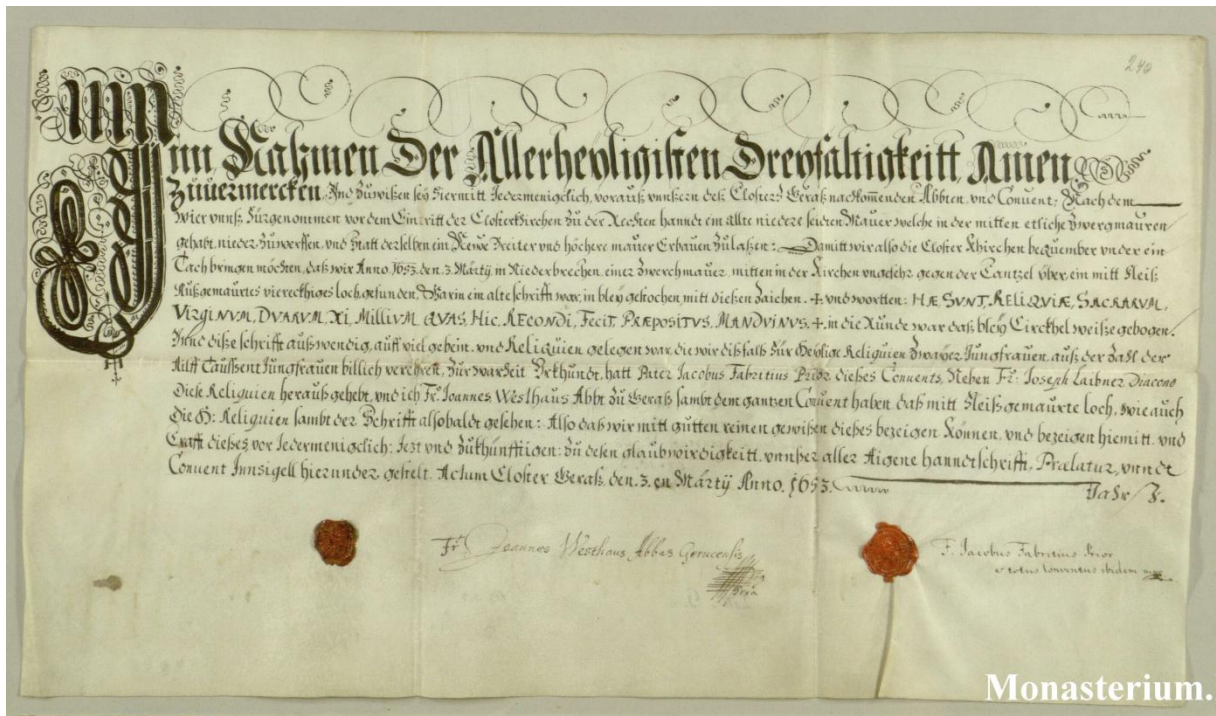 240
Inn
Im Nahmen Der Allerheyligisten Dreyfaltigkeitt, Amen.
Zuuermercken. Vnd Zuwißen sey hiermitt Jedermeniglich, vorauß vnnsern deß Closters Geraß nachkommenden Abbten, vnd Conuent: Nach dem
Wier vnnß fürgenommen vor dem Eintritt der Closterkirchen Zu der Rechten handt ein allte niedere seiden Mauer welche in der mitten etliche Zwergmauren
gehabt, nieder Zuwerffen, vnd statt derselben ein Newe Breiter vnd höchere mauer Erbauen Zulaßen: Damitt wir also die Closter Khirchen bequember vnder ein
Tach bringen möchten, daß wir Anno 1653. den. 3. Martij, in Niederbrechen, einer Zwerchmauer, mitten in der Kirchen vngefehr gegen der Cantzel vber, ein mitt Fleiß
Außgemaurtes viereckhiges loch, gefunden, Warin ein alte schrifft war, in bley gestochen, mitt dießen Zaichen. + vnd wortten: HÆ SVNT, RELIQVIÆ, SACRARVM,
VIRGINVM, DVARVM, XI, MILLIVM, QVAS, HIC, RECONDI, FECIT, PRÆPOSITVS, MANDVINVS. +. in die Runde war daß bley Circkhel weiße gebogen.
Vnnd diße schrifft außwendig, auff viel gebein, vnd Reliquien gelegen war, die wir dißfalls für Heylige Reliquien Zwayer Jungfrauen, auß der Zall der
Ailff Taussent Jungfrauen billich verehren, Zur warheit Vrkhundt, hatt Pater Jacobus Fabritius Prior dießes Conuents, Neben Fr: Joseph Laibner Diacono
Dieße Religuien herauß gehebt, vnd ich Fr. Joannes Westhaus Abbt Zu Geraß sambt dem gantzen Conuent haben daß mitt Fleiß gemaurte loch, wie auch
Die H: Reliquien sambt der Schrifft alsobaldt gesehen: Also daß wir mitt gutten reinen gewißen dießes bezeigen Können, vnd bezeigen hiemitt, vnd
Crafft dießes, vor Jedermeniglich: Jezt vnd Zukhünfftigen: Zu deßen glaubwirdigkeitt, vnnßer aller Aigene hanndtschrifft, Prælatur, vnndt
Conuent Innsigell hierunder gestelt. Actum Closter Geraß, den. 3. en Martij Anno. 1653.
Jahr
Fr. Joannes Westhaus Abbas Gerucensis
F. Jacobus Fabritius Prior
et totus Conventus ibidem
Monasterium.